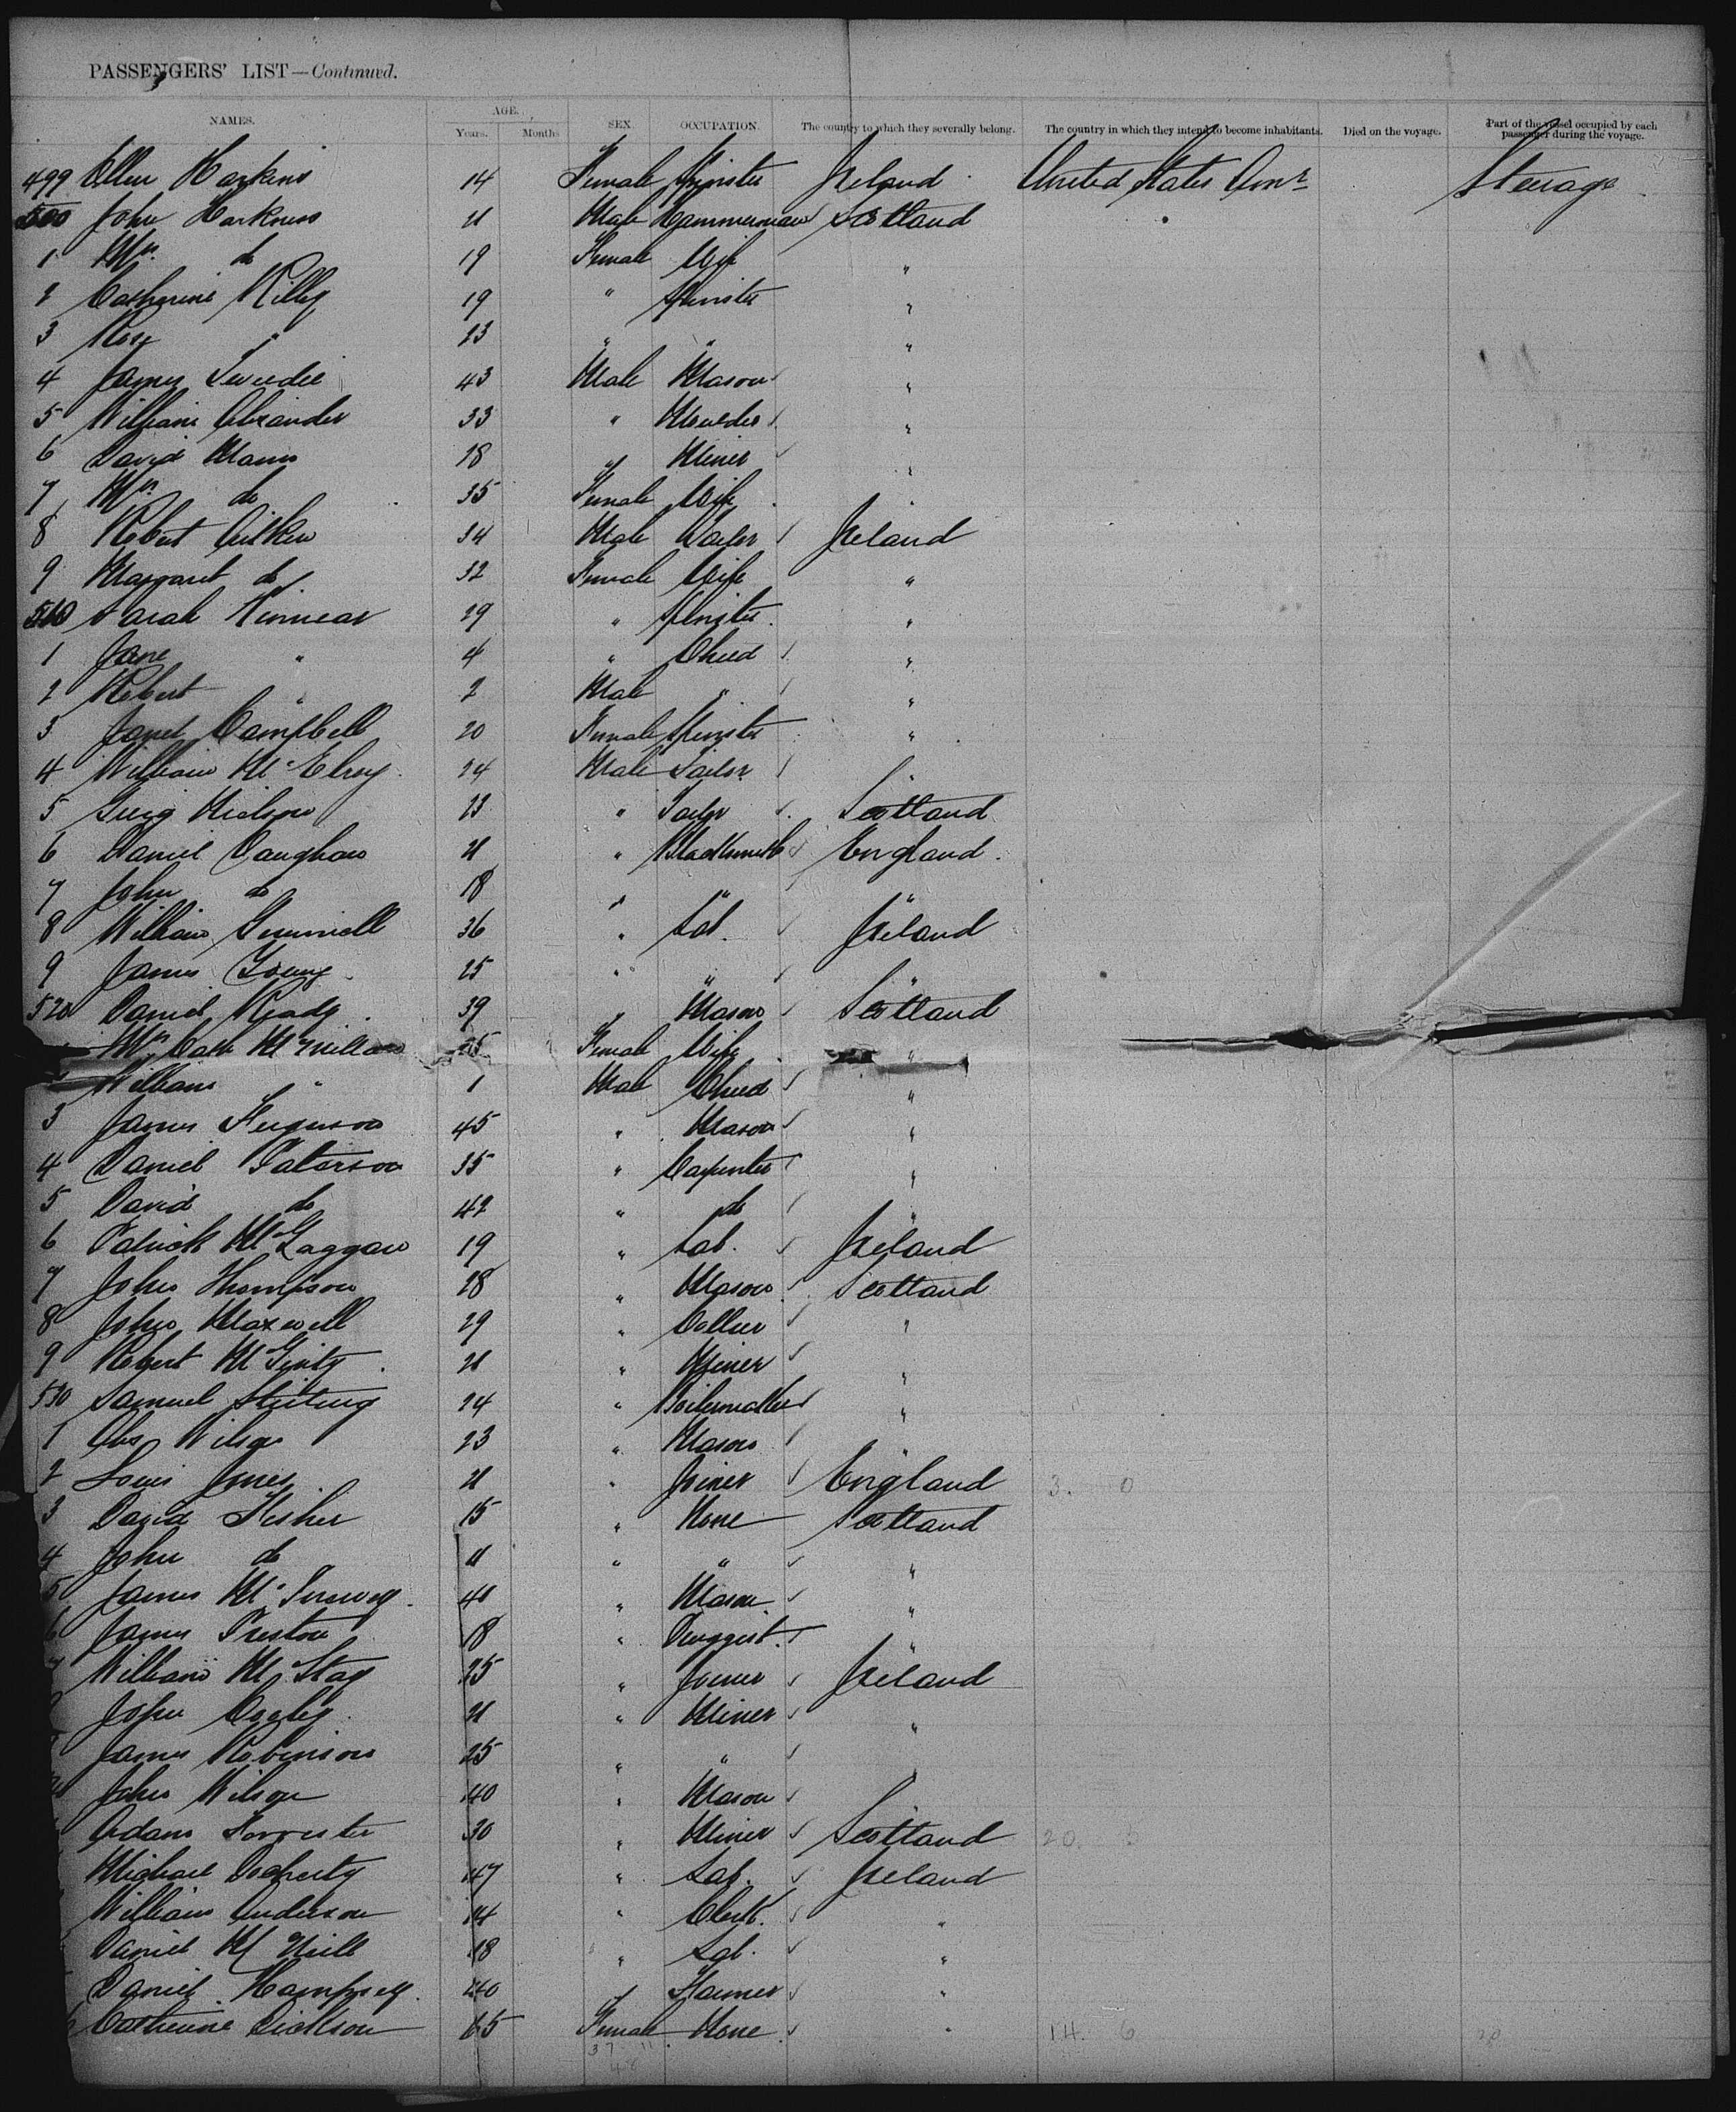 PASSENGERS' LIST—Continued.
NAMES. AGE. Years. Months SEX. OCCUPATION. The country to which they severally belong. The country in which they intend to become inhabitants. Died on the voyage. Part of the vessel occupied by each passenger during the voyage.
499 Ellen Harkins 14 Female Spinster Ireland United States Amr Steerage
500 John Harkness 21 Male Hammerman Scotland
1 Mrs. do 19 Female Wife "
2 Catherine Killy 19 " Spinster "
3 Rose " 23 " " "
4 James Tweedie 43 Male Mason "
5 William Alexander 33 " Moulder "
6 David Mann 28 " Miner "
7 Mrs. do 35 Female Wife "
8 Robert Aitken 34 Male Sailor Ireland
9 Margaret do 32 Female Wife "
510 Sarah Kinnear 29 " Spinster "
1 Jane " 4 " Child "
2 Robert " 2 Male " "
3 Janet Campbell 20 Female Spinster "
4 William McElroy 24 Male Sailor "
5 Greig 23 " Tailor Scotland
6 Daniel Vaughan 21 " Blacksmith England
7 John do 18 " " "
8 William Gemmell 36 " Lab. Ireland
9 James Young 25 " " "
520 Daniel Ready 39 " Mason Scotland
Mrs. Cath McMillan 25 Female Wife "
William " 1 Male Child "
3 James Ferguson 45 " Mason "
4 Daniel Paterson 35 " Carpenter "
5 David do 42 " do "
6 Patrick McGaggan 19 " Lab. Ireland
7 John Thompson 28 " Mason Scotland
8 John Maxwell 29 " Collier "
9 Robert McGinty 21 " Miner "
530 Samuel Stirling 24 " Boilermaker "
1 Wilson 23 " Mason "
2 Louis Jones 21 " Joiner England 3. 0
3 David Fisher 15 " None Scotland
4 John do 11 " " "
5 James 40 " Mason "
6 James Preston 18 " Druggist "
William McStay 25 " Joiner Ireland
John 21 " Miner "
James Robinson 25 " " "
John Wilson 40 " Mason
Adam Forrester 30 " Miner Scotland 20.
Michael Docherty 47 " Lab. Ireland
William Anderson 14 " Clerk. "
Daniel McNeill 18 " Lab. "
Daniel Hampsey 40 " Farmer "
Catherine Dickson 65 Female None " 14. 6